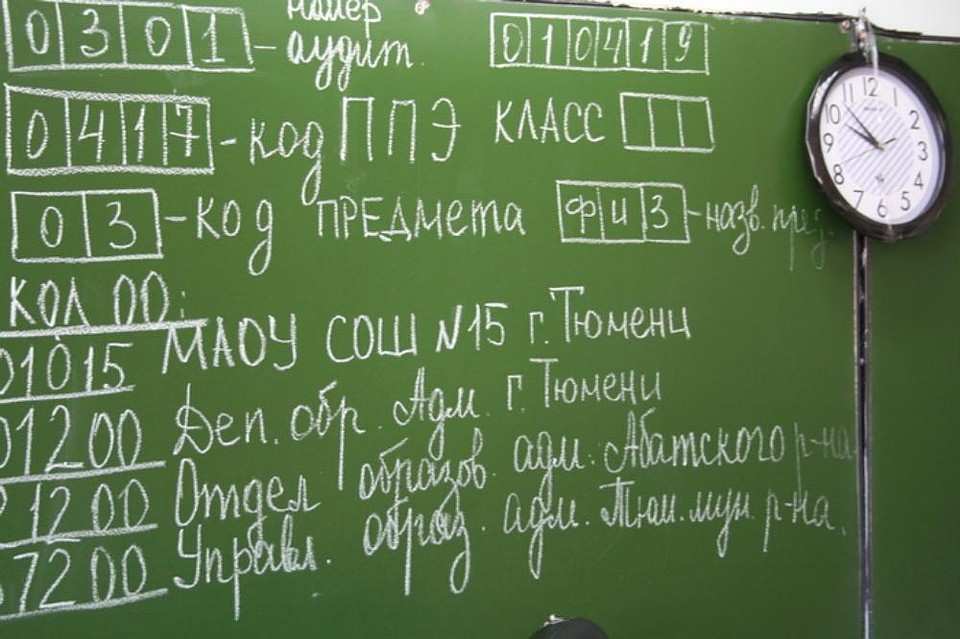 0301 - номер аудит. 010419
0417 - код ППЭ КЛАСС
03 - КОД ПРЕДМЕТА ФИЗ - назв. пред.
КОД ОО:
01015 МАОУ СОШ №15 г. Тюмени
01200 Деп. обр. Адм. г. Тюмени
1200 Отдел образов. адм. Абатского р-на
7200 Управл. образ. адм. Тюм. мун. р-на.
12 1 2 3 4 5 6 7 8 9 10 11